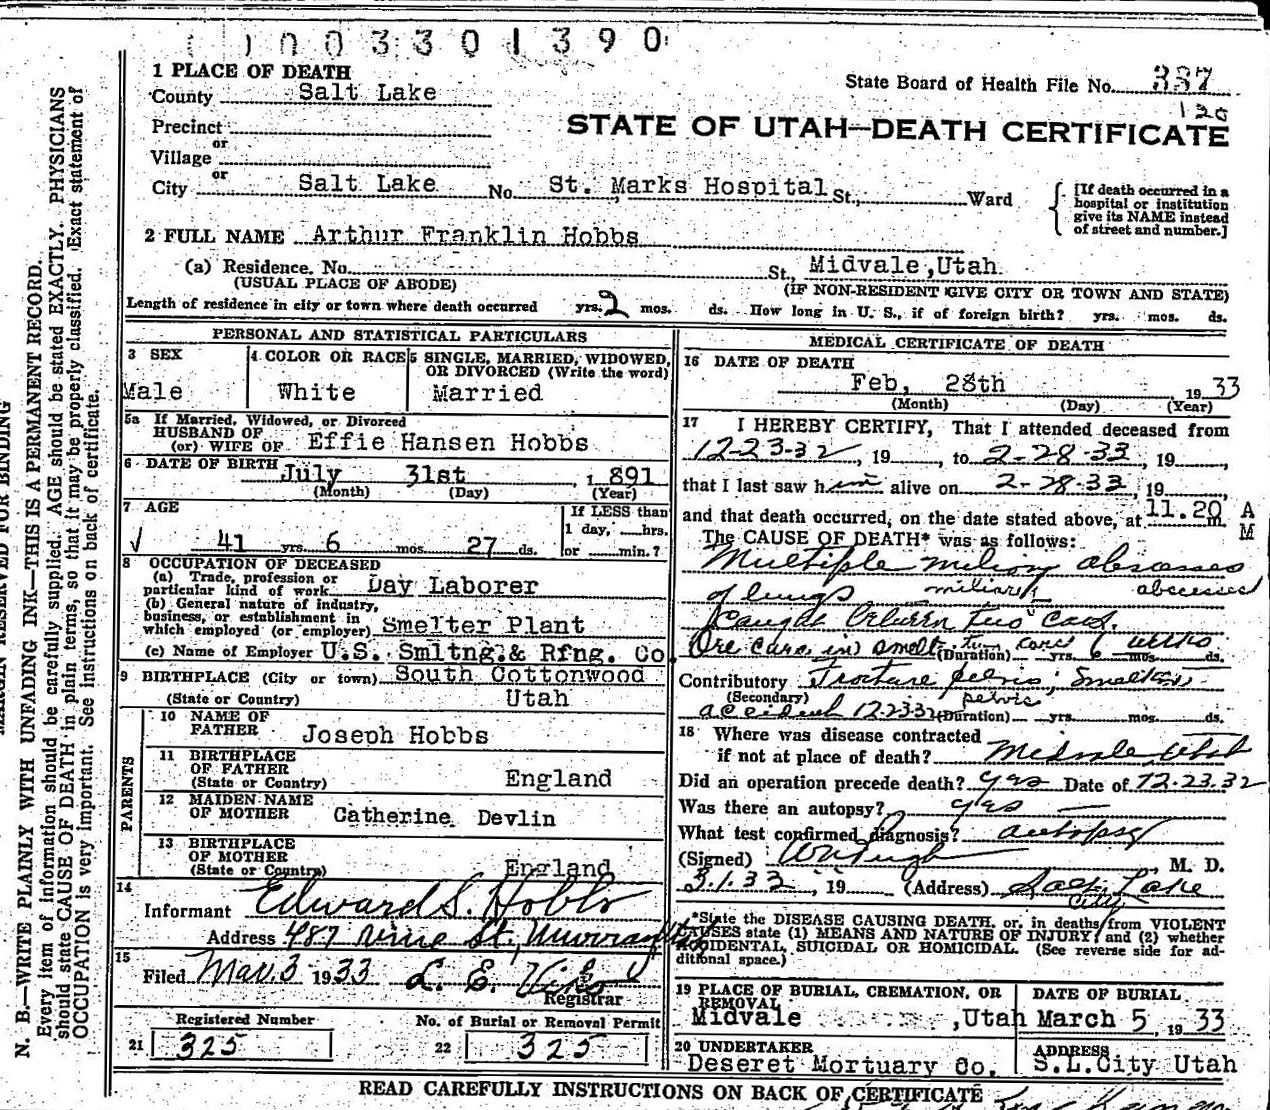 003301390
1 PLACE OF DEATH
State Board of Health File No. 337
120
County Salt Lake
STATE OF UTAH—DEATH CERTIFICATE
Precinct
or
Village
or
City Salt Lake No. St. Marks Hospital St., Ward
[If death occurred in a hospital or institution give its NAME instead of street and number.]
2 FULL NAME Arthur Franklin Hobbs
(a) Residence. No. St., Midvale, Utah
(USUAL PLACE OF ABODE) (IF NON-RESIDENT GIVE CITY OR TOWN AND STATE)
Length of residence in city or town where death occurred yrs. 2 mos. ds. How long in U. S., if of foreign birth? yrs. mos. ds.
PERSONAL AND STATISTICAL PARTICULARS
3 SEX
Male
4 COLOR OR RACE
White
5 SINGLE, MARRIED, WIDOWED, OR DIVORCED (Write the word)
Married
5a If Married, Widowed, or Divorced
HUSBAND OF
(or) WIFE OF Effie Hansen Hobbs
6 DATE OF BIRTH July 31st, 1891
(Month) (Day) (Year)
7 AGE
41 yrs. 6 mos. 27 ds.
If LESS than
1 day, hrs.
or min.?
8 OCCUPATION OF DECEASED
(a) Trade, profession or
particular kind of work Day Laborer
(b) General nature of industry,
business, or establishment in
which employed (or employer) Smelter Plant
(c) Name of Employer U.S. Smltng & Rfng. Co.
9 BIRTHPLACE (City or town) South Cottonwood
(State or Country) Utah
PARENTS
10 NAME OF
FATHER Joseph Hobbs
11 BIRTHPLACE
OF FATHER
(State or Country) England
12 MAIDEN NAME
OF MOTHER Catherine Devlin
13 BIRTHPLACE
OF MOTHER
(State or Country) England
14
Informant Edward S. Hobbs
Address 487 Vine St, Murray
15
Filed Mar. 3 1933 L. E.
Registrar
Registered Number
21 325
No. of Burial or Removal Permit
22 325
MEDICAL CERTIFICATE OF DEATH
16 DATE OF DEATH
Feb, 28th 1933
(Month) (Day) (Year)
17 I HEREBY CERTIFY, That I attended deceased from
12-23-32, 19, to 2-28-33, 19,
that I last saw him alive on 2-28-33, 19,
and that death occurred, on the date stated above, at 11.20 A M
m.
The CAUSE OF DEATH* was as follows:
Multiple miliary abscesses
of lungs miliary abscesses
Caught Between Two Cars.
Ore cars in smelt two cars 6 weeks
(Duration) yrs. mos. ds.
Contributory Fracture pelvis; Smelter
(Secondary) pelvis
accident 122332 (Duration) yrs. mos. ds.
18 Where was disease contracted
if not at place of death? Midvale Utah
Did an operation precede death? yes Date of 12.23.32
Was there an autopsy? yes
What test confirmed diagnosis? autopsy
(Signed) , M. D.
3.1.33, 19 (Address) Salt Lake City
*State the DISEASE CAUSING DEATH, or, in deaths from VIOLENT
CAUSES state (1) MEANS AND NATURE OF INJURY; and (2) whether
ACCIDENTAL, SUICIDAL OR HOMICIDAL. (See reverse side for ad-
ditional space.)
19 PLACE OF BURIAL, CREMATION, OR
REMOVAL
Midvale, Utah
DATE OF BURIAL
March 5, 1933
20 UNDERTAKER
Deseret Mortuary Co.
ADDRESS
S.L.City Utah
READ CAREFULLY INSTRUCTIONS ON BACK OF CERTIFICATE
MARGIN RESERVED FOR BINDING
N. B.—WRITE PLAINLY WITH UNFADING INK—THIS IS A PERMANENT RECORD.
Every item of information should be carefully supplied. AGE should be stated EXACTLY. PHYSICIANS
should state CAUSE OF DEATH in plain terms, so that it may be properly classified. Exact statement of
OCCUPATION is very important. See instructions on back of certificate.